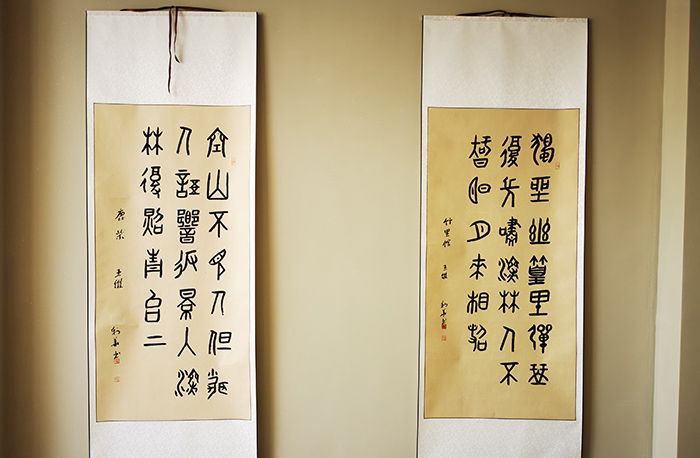 獨坐幽篁里彈琴
復長嘯深林人不
知明月來相照
竹里館 王維
空山不見人但聞
人語響返景入深
林復照青苔上
鹿柴 王維